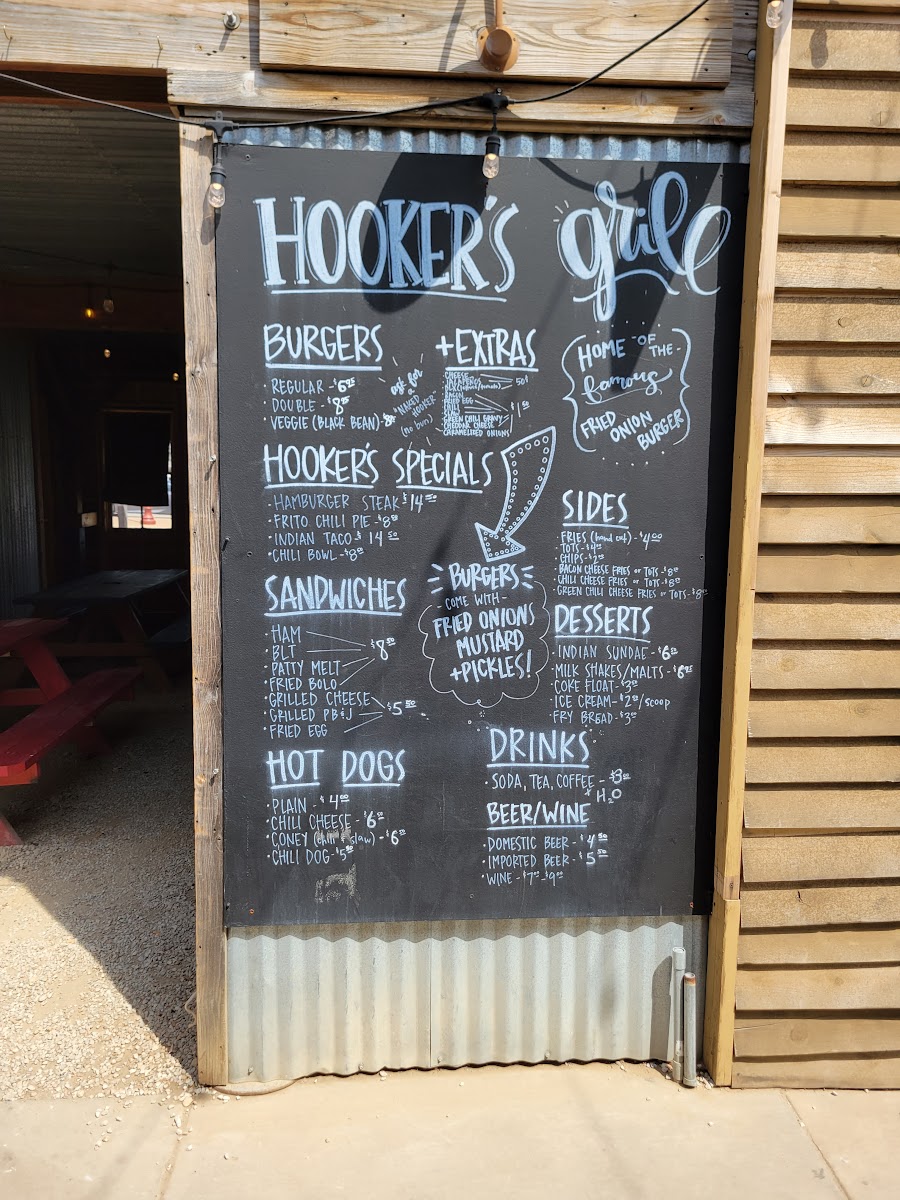 HOOKER'S grill
BURGERS
• REGULAR - $6
• DOUBLE - $8
VEGGIE (BLACK BEAN) - $8
ask for
a
"NAKED HOOKER"
(no bun)
+EXTRAS
CHEESE
JALAPEÑOS
50¢
BACON
FRIED EGG
CHILI
GREEN CHILI GRAVY
CHEDDAR CHEESE
CARAMELIZED ONIONS
HOME OF THE
famous
FRIED ONION
BURGER
HOOKER'S SPECIALS
• HAMBURGER STEAK $14
• FRITO CHILI PIE - $8
• INDIAN TACO $14 50
• CHILI BOWL - $8
SIDES
FRIES (hand cut) - $4 00
• TOTS - $4
• CHIPS - $2
• BACON CHEESE FRIES or TOTS - $8
• CHILI CHEESE FRIES or TOTS - $8
• GREEN CHILI CHEESE FRIES or TOTS - $8
BURGERS
- COME WITH -
FRIED ONIONS
MUSTARD
+PICKLES!
SANDWICHES
• HAM
• BLT
• PATTY MELT
• FRIED BOLO
$8 50
• GRILLED CHEESE
• GRILLED PB&J
• FRIED EGG
$5 50
DESSERTS
• INDIAN SUNDAE - $6
• MILK SHAKES/MALTS - $6
• COKE FLOAT - $3
ICE CREAM - $2/SCOOP
• FRY BREAD - $3
HOT DOGS
• PLAIN - $4
• CHILI CHEESE - $6
• CONEY (chili & slaw) - $6
• CHILI DOG - $5
DRINKS
• SODA, TEA, COFFEE - $3
* H2O
BEER/WINE
DOMESTIC BEER - $4 50
• IMPORTED BEER - $5 50
• WINE - $7 - $9